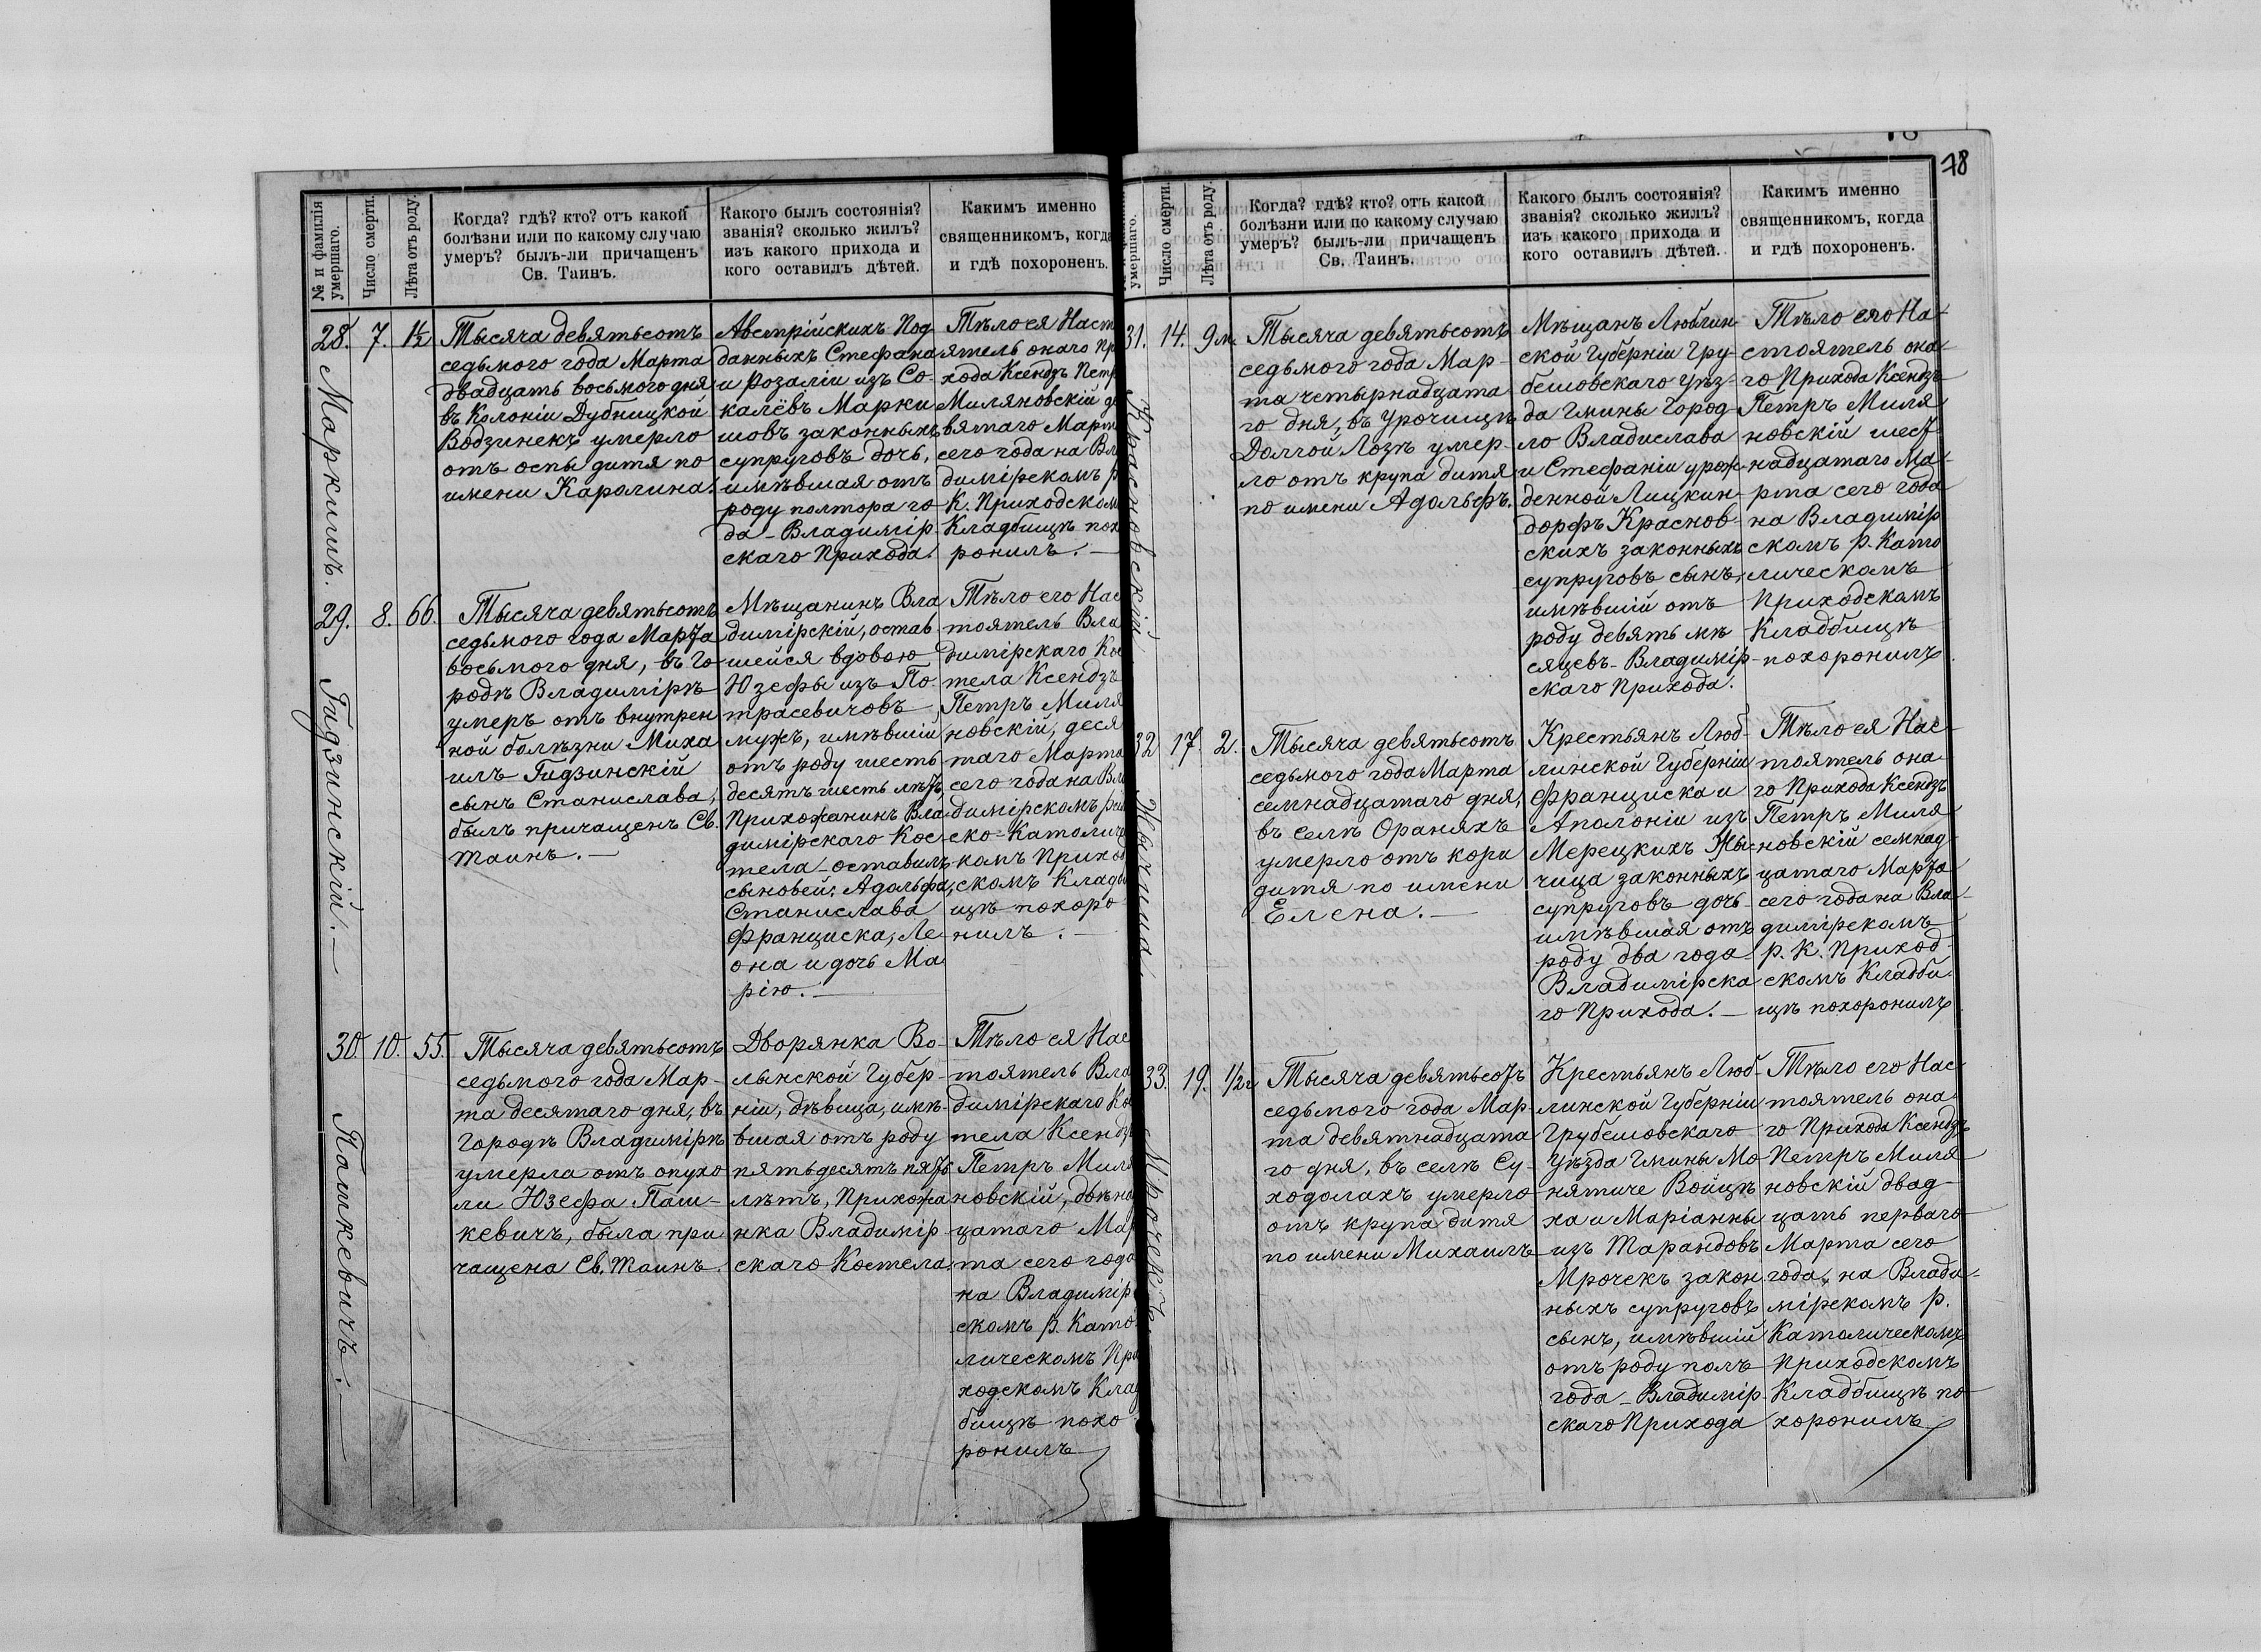 18
№ и фамилія умершаго.
Число смерти.
Лѣта отъ роду.
Когда? гдѣ? кто? отъ какой
болѣзни или по какому случаю
умеръ? былъ-ли причащенъ
Св. Таинъ.
Какого былъ состоянія?
званія? сколько жилъ?
изъ какого прихода и
кого оставилъ дѣтей.
Какимъ именно
священникомъ, когда
и гдѣ похороненъ.
28.
Маркишъ.
7.
1½
Тысяча девятьсотъ
седьмого года Марта
двадцать восьмого дня
въ Колоніи Дубницкой
Водзинекъ умерло
отъ оспы дитя по
имени Каролина.
Австрійскихъ Под
данныхъ Стефана
и Розаліи изъ Со-
калёвъ Марки
шовъ законныхъ
супруговъ дочь,
имѣвшая отъ
роду полтора го-
да - Владимір
скаго Прихода.
Тѣло ея Наст
ятель онаго Пр
хода Ксендзъ Петр
Миляновскій де
вятаго Март
сего года на Вла
димірскомъ р
К. Приходском
Кладбищѣ пох
ронилъ. —
29.
Гидзинскій. —
8.
66.
Тысяча девятьсотъ
седьмого года Марта
восьмого дня, въ Го-
родѣ Владимірѣ
умеръ отъ внутрен
ной болѣзни Миха
илъ Гидзинскій
сынъ Станислава,
былъ причащенъ Св.
Таинъ. —
Мѣщанинъ Вла
димірскій, остав
шейся вдовою
Юзефы изъ По-
трасевичовъ
мужъ, имѣвшій
отъ роду шесть-
десятъ шесть лѣтъ,
Прихожанинъ Вла-
димірскаго Кос-
тела - оставилъ
сыновей: Адольфа,
Станислава
Франциска, Ле-
она и дочь Ма
рію. —
Тѣло его Нас
тоятель Вла
димірскаго Кос
тела Ксендзъ
Петръ Миля
новскій, деся
таго Марта
сего года на Вла
димірскомъ рим
ско-Католиче
комъ Приход
скомъ Кладб
ищѣ похоро
нилъ. —
30.
Пашкевичъ. —
10.
55.
Тысяча девятьсотъ
седьмого года Мар-
та десятаго дня, въ
Городѣ Владимірѣ
умерла отъ опухо
ли Юзефа Паш-
кевичъ, была при
чащена Св. Таинъ.
Дворянка Во-
лынской Губер-
ніи, дѣвица, имѣ-
вшая отъ роду
пятьдесятъ пять
лѣтъ, Прихожа
нка Владимір
скаго Костела.
Тѣло ея Нас
тоятель Вла
димірскаго Ко
тела Ксендзъ
Петръ Миля
новскій, двѣна
цатаго Мар
та сего года
на Владимір
скомъ р. Като
лическомъ При
ходскомъ Клад
бищѣ похо
ронилъ
умершаго.
Число смерти.
Лѣта отъ роду.
Когда? гдѣ? кто? отъ какой
болѣзни или по какому случаю
умеръ? былъ-ли причащенъ
Св. Таинъ.
Какого былъ состоянія?
званія? сколько жилъ?
изъ какого прихода и
кого оставилъ дѣтей.
Какимъ именно
священникомъ, когда
и гдѣ похороненъ.
31.
Красновскій.
14.
9 м.
Тысяча девятьсотъ
седьмого года Мар-
та четырнадцата
го дня, въ Урочищѣ
Долгой Лозѣ умер-
ло отъ крупа дитя
по имени Адольфъ.
Мѣщанъ Люблин
ской Губерніи Гру-
бешовскаго Уѣз-
да Гмины Город-
ло Владислава
и Стефаніи урож-
денной Лицкин-
дорфъ Краснов-
скихъ законныхъ
супруговъ сынъ,
имѣвшій отъ
роду девять мѣ
сяцевъ - Владимір
скаго Прихода.
Тѣло его На-
стоятель она-
го Прихода Ксендзъ
Петръ Миля
новскій шест-
надцатаго Ма-
рта сего года
на Владимір
скомъ р. Като
лическомъ
Приходскомъ
Кладбищѣ
похоронилъ
32
17.
2.
Тысяча девятьсотъ
седьмого года Марта
семнадцатаго дня,
въ селѣОраняхъ
умерло отъ кори
дитя по имени
Елена. —
Крестьянъ Люб-
линской Губерніи
Франциска и
Аполоніи изъ
Мерецкихъ
чица законныхъ
супруговъ дочь
имѣвшая отъ
роду два года
Владимірска
го Прихода. —
Тѣло ея Нас-
тоятель она-
го Прихода Ксендзъ
Петръ Миля
новскій семнад
цатаго Марта
сего года на Вла-
димірскомъ
р. К. Приход-
скомъ Кладби-
щѣ похоронилъ
33.
Мрочекъ.
19.
1/2 г
Тысяча девятьсотъ
седьмого года Мар-
та девятнадцата
го дня, въ селѣ Су-
ходолахъ умерло
отъ крупа дитя
по имени Михаилъ
Крестьянъ Люб-
линской Губерніи
Грубешовскаго
Уѣзда Гмины Мо-
нятиче Войцѣ
ха и Маріанны
изъ Тарандовъ
Мрочекъ закон
ныхъ супруговъ
сынъ, имѣвшій
отъ роду полъ
года - Владимір
скаго Прихода
Тѣло его Нас
тоятель она-
го Прихода Ксендзъ
Петръ Миля
новскій двад-
цать перваго
Марта сего
года, на Влади-
мірскомъ р.
Католическомъ
Приходскомъ
Кладбищѣ по
хоронилъ